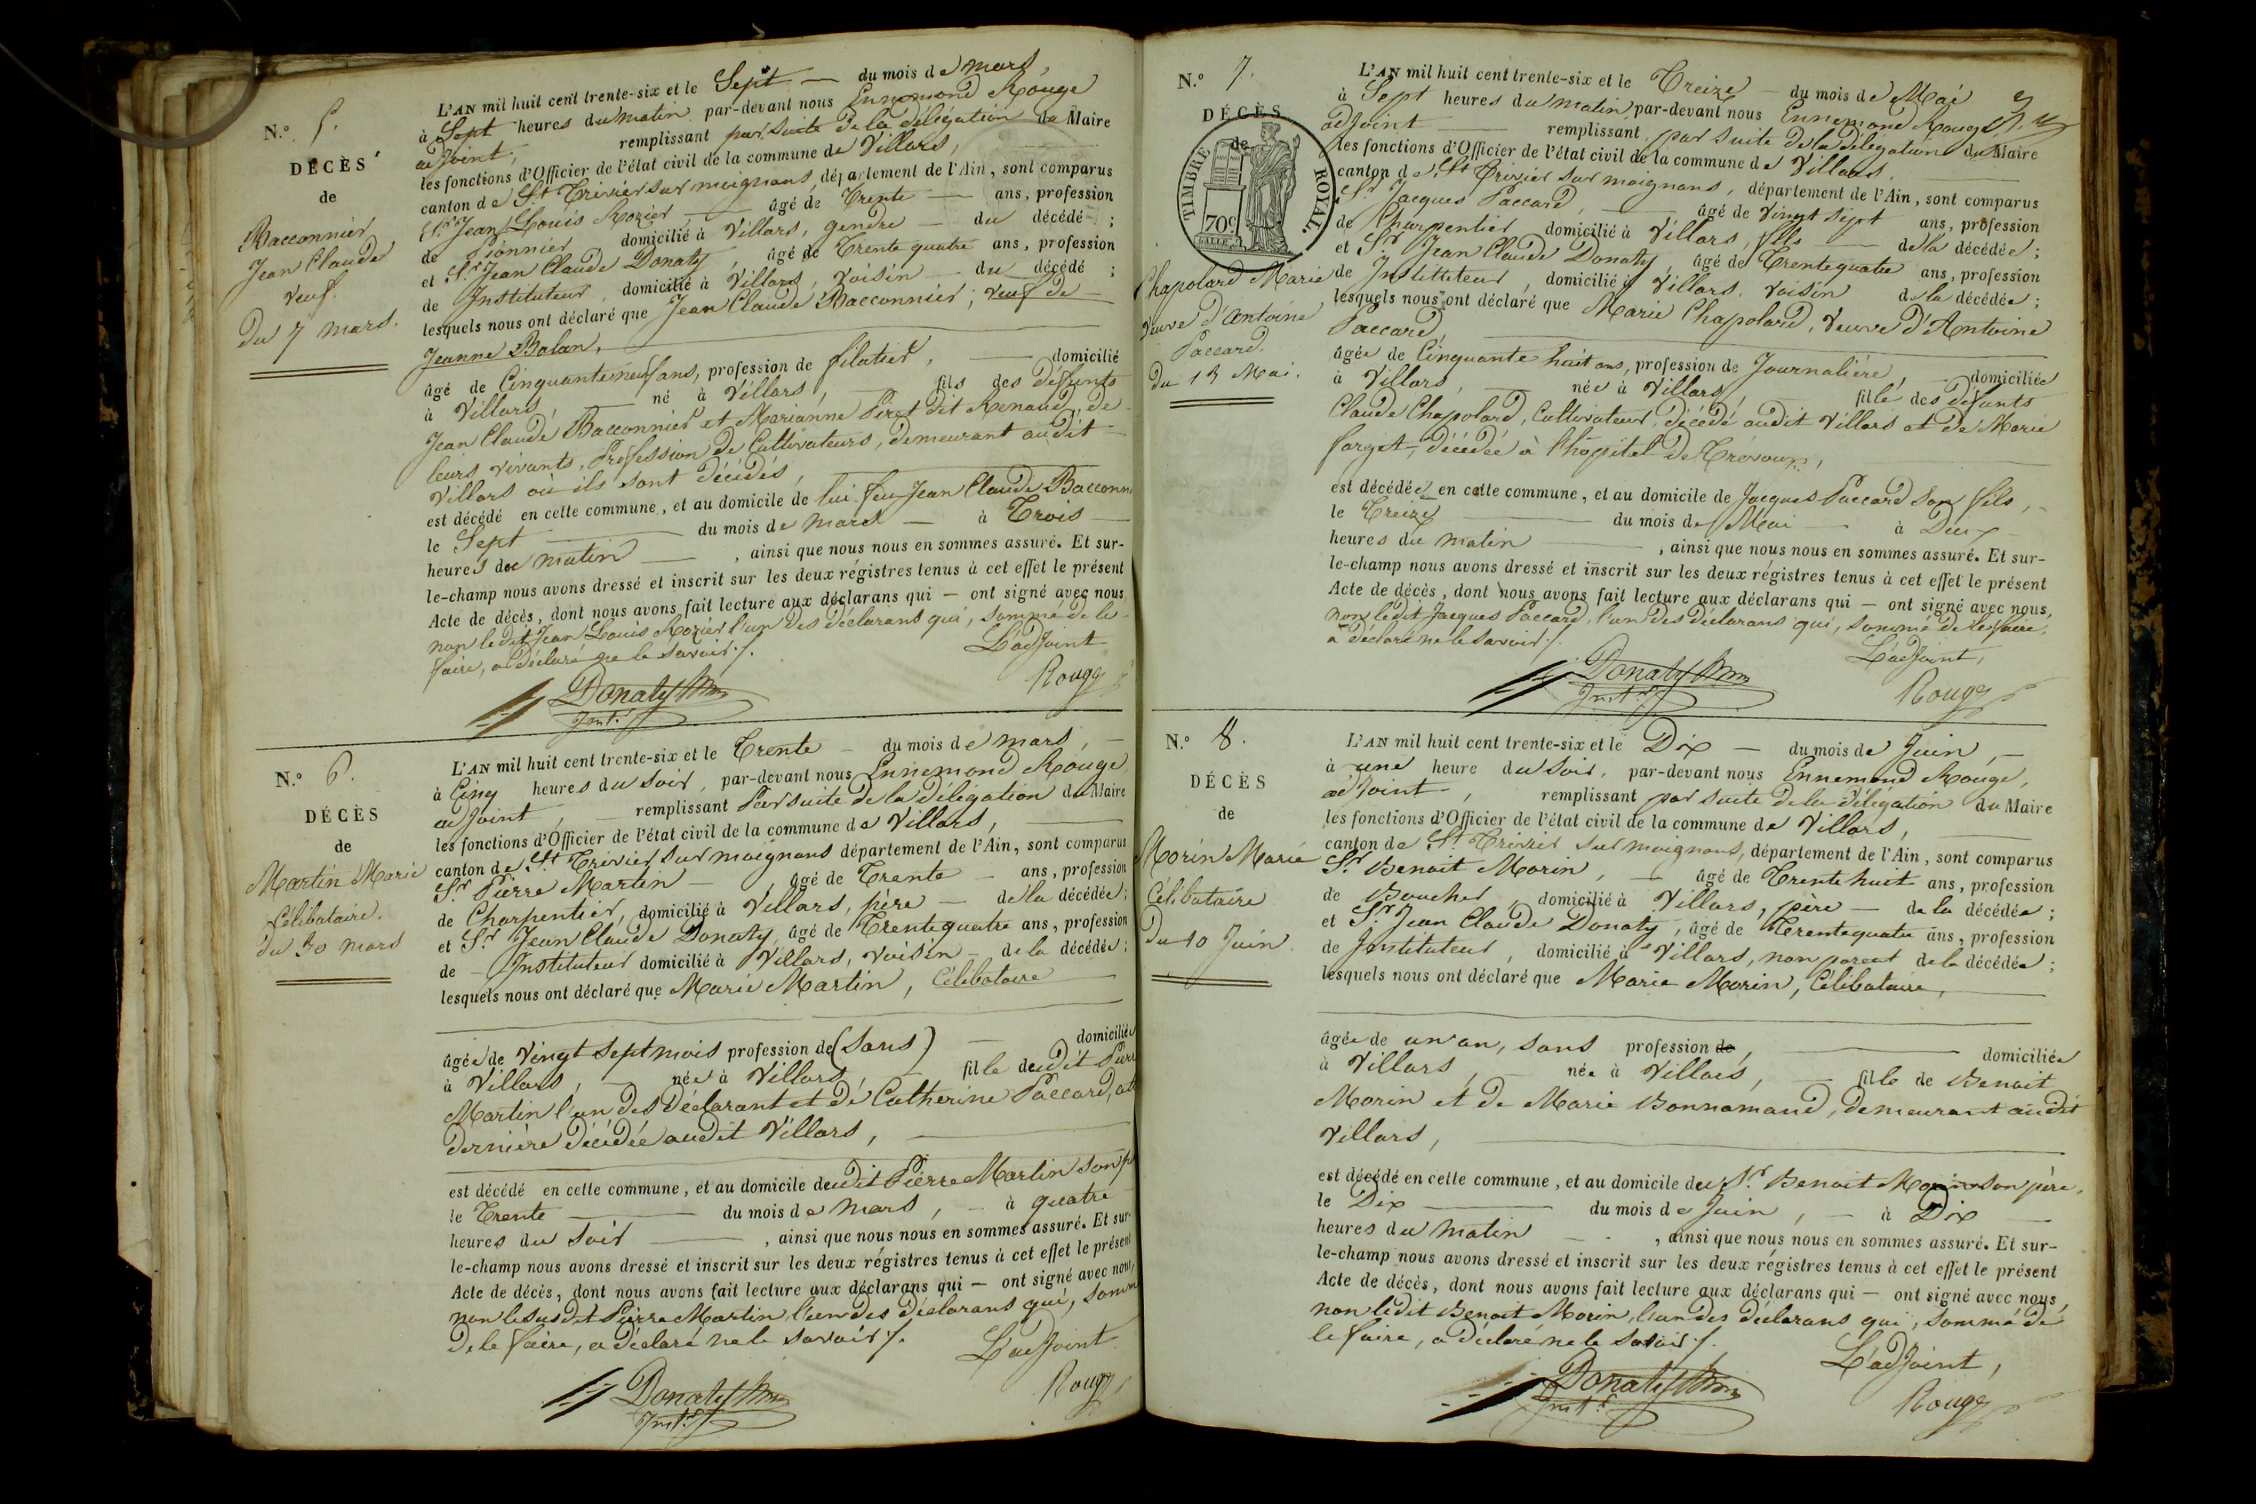 N.º 5.
DÉCÈS
de
Bacconnier
Jean Claude
veuf.
Du 7 mars.
L'AN mil huit cent trente-six et le Sept — du mois de mars,
à Sept heures du matin par-devant nous Ennemond Rouge
adjoint, remplissant par suite de la délégation du Maire
les fonctions d'Officier de l'état civil de la commune de Villars,
canton de St Trivier sur moignans, département de l'Ain, sont comparus
Sr Jean Louis Rozier — âgé de Trente — ans, profession
de Pionnier domicilié à Villars, gendre — du décédé ;
et Sr Jean Claude Donaty, âgé de Trente quatre ans, profession
de Instituteur, domicilié à Villars, voisin — du décédé ;
lesquels nous ont déclaré que Jean Claude Bacconnier, veuf de
Jeanne Balan, —
âgé de Cinquante neuf ans, profession de filatier, — domicilié
à Villars, — né à Villars, fils des défunts
Jean Claude Bacconnier et Marianne Piret dit Renaud, de
leurs vivants, Profession de Cultivateurs, demeurant audit
Villars où ils sont décédés,
est décédé en cette commune, et au domicile de lui feu Jean Claude Bacconn
le Sept — du mois de mars — à Trois —
heures du matin — , ainsi que nous nous en sommes assuré. Et sur-
le-champ nous avons dressé et inscrit sur les deux régistres tenus à cet effet le présent
Acte de décès, dont nous avons fait lecture aux déclarans qui — ont signé avec nous
non ledit Jean Louis Rozier l'un des déclarans qui, sommé de le
faire, a déclaré ne le savoir ./.
L'adjoint
Donaty
Instr
Rouge
N.º 6.
DÉCÈS
de
Martin Marie
Célibataire.
du 30 mars
L'AN mil huit cent trente-six et le Trente — du mois de mars, —
à Cinq heures du soir, par-devant nous Ennemond Rouge,
adjoint, — remplissant Par suite de la délégation du Maire
les fonctions d'Officier de l'état civil de la commune de Villars, —
canton de St Trivier sur moignans département de l'Ain, sont comparus
Sr Pierre Martin — , âgé de Trente — ans, profession
de Charpentier, domicilié à Villars, père — de la décédée ;
et Sr Jean Claude Donaty, âgé de Trente quatre ans, profession
de — Instituteur domicilié à Villars, voisin — de la décédée ;
lesquels nous ont déclaré que Marie Martin, Célibataire
âgée de Vingt Sept mois profession de (Sans) — domiciliée
à Villars, — née à Villars, — fille dudit Pierr
Martin l'un des déclarant et de Catherine Paccard, cett
dernière décédée audit Villars, —
est décédé en cette commune, et au domicile dudit Pierre Martin son p
le Trente — du mois de mars, — à quatre
heures du soir — , ainsi que nous nous en sommes assuré. Et sur-
le-champ nous avons dressé et inscrit sur les deux régistres tenus à cet effet le présent
Acte de décès, dont nous avons fait lecture aux déclarans qui — ont signé avec nous,
non le susdit Pierre Martin, l'un des déclarans qui, somm
de le faire, a déclaré ne le savoir ./.
L'adjoint
Donaty
Instr
Rouge
N.º 7.
DÉCÈS
de
TIMBRE ROYAL.
70c
Chapolard Marie
Veuve d'Antoine
Paccard.
Du 13 Mai.
L'AN mil huit cent trente-six et le Treize — du mois de Mai
à Sept heures du matin, par-devant nous Ennemond Rouge
adjoint — remplissant par suite de la délégation du Maire
les fonctions d'Officier de l'état civil de la commune de Villars,
canton de St Trivier sur moignans, département de l'Ain, sont comparus
Sr Jacques Paccard, — âgé de vingt Sept ans, profession
de Charpentier domicilié à Villars, fils — de la décédée ;
et Sr Jean Claude Donaty, âgé de Trente quatre ans, profession
de Instituteur, domicilié à Villars, voisin de la décédée ;
lesquels nous ont déclaré que Marie Chapolard, Veuve d'Antoine
Paccard, —
âgée de Cinquante huit ans, profession de Journalière, — domiciliée
à Villars, — née à Villars, fille des défunts
Claude Chapolard, Cultivateur, décédé audit Villars et de Marie
forget, décédée à l'hôpital de Trévoux,
est décédée en cette commune, et au domicile de Jacques Paccard son fils,
le Treize — du mois de Mai — à Deux
heures du matin — , ainsi que nous nous en sommes assuré. Et sur-
le-champ nous avons dressé et inscrit sur les deux régistres tenus à cet effet le présent
Acte de décès, dont nous avons fait lecture aux déclarans qui — ont signé avec nous,
non ledit Jacques Paccard, l'un des déclarans qui, sommé de le faire,
a déclaré ne le savoir ./.
L'adjoint,
Donaty
Instr
Rouge
N.º 8.
DÉCÈS
de
Morin Marie
Célibataire
Du 10 Juin.
L'AN mil huit cent trente-six et le Dix — du mois de Juin, —
à une heure du soir, par-devant nous Ennemond Rouge,
adjoint, remplissant par suite de la délégation du Maire
les fonctions d'Officier de l'état civil de la commune de Villars, —
canton de St Trivier sur moignans, département de l'Ain, sont comparus
Sr Benoit Morin, — âgé de Trente huit ans, profession
de Boucher domicilié à Villars, père — de la décédée ;
et Sr Jean Claude Donaty, âgé de Trente quatre ans, profession
de Instituteur, domicilié à Villars, non parent de la décédée ;
lesquels nous ont déclaré que Marie Morin, Célibataire, —
âgée de un an, sans profession de, — domiciliée
à Villars, — née à Villars, — fille de Benoit
Morin et de Marie Bonnamand, demeurant audit
Villars, —
est décédé en cette commune, et au domicile du Sr Benoit Morin son père,
le Dix — du mois de Juin, — à Dix —
heures du matin — , ainsi que nous nous en sommes assuré. Et sur-
le-champ nous avons dressé et inscrit sur les deux régistres tenus à cet effet le présent
Acte de décès, dont nous avons fait lecture aux déclarans qui — ont signé avec nous,
non ledit Benoit Morin, l'un des déclarans qui, sommé de
le faire, a déclaré ne le savoir ./.
L'adjoint,
Donaty
Instr
Rouge